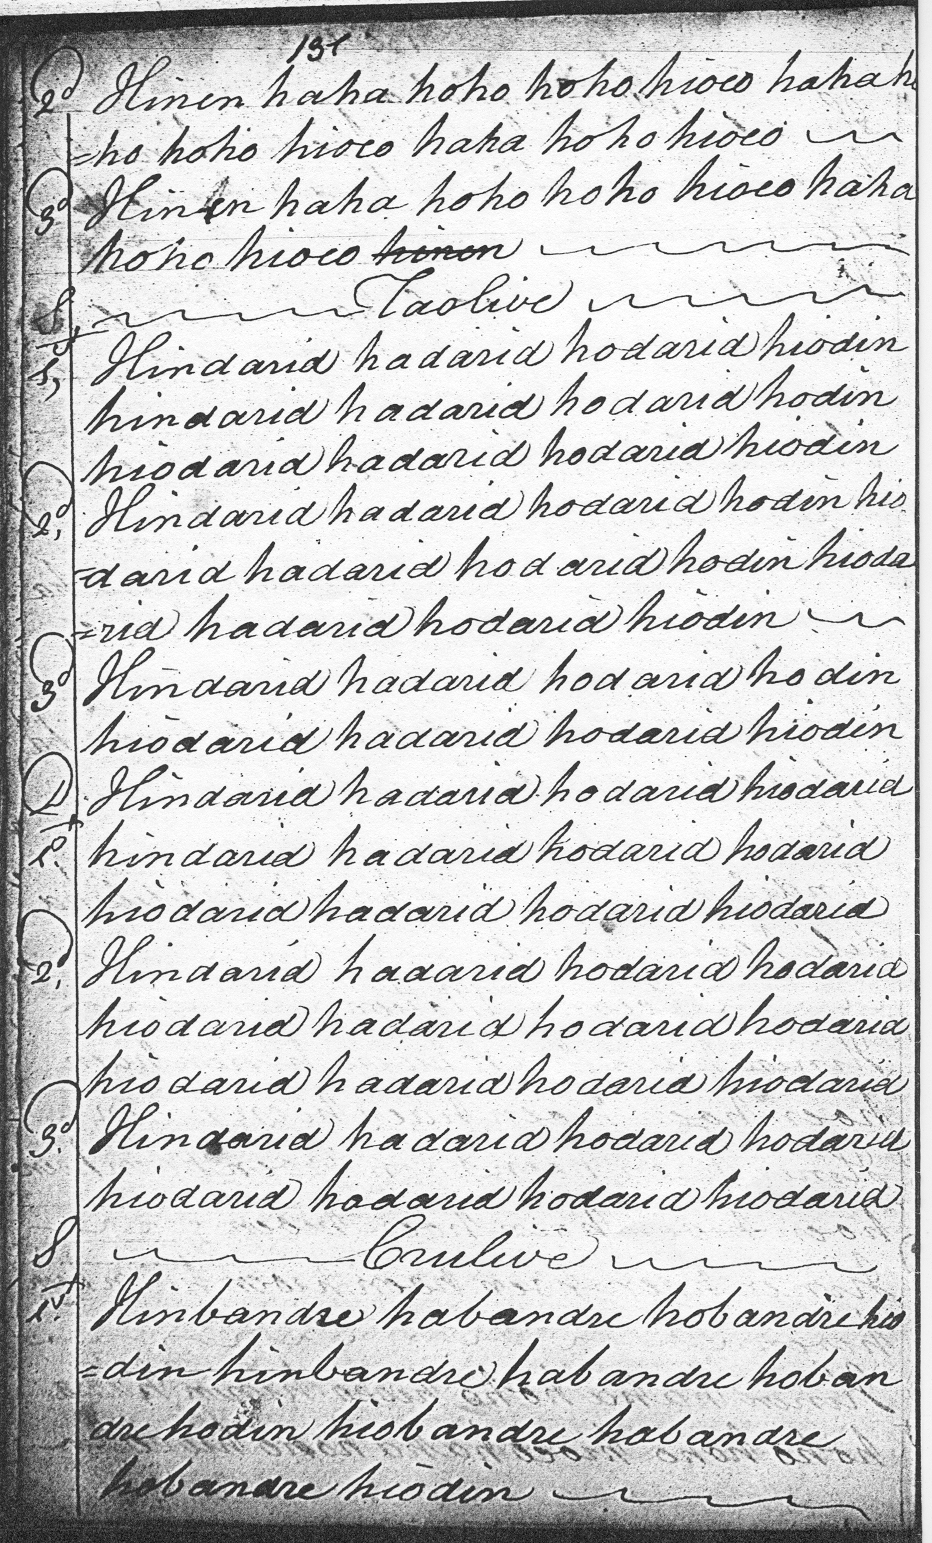 131
2d Hinen haha hoho hoho hioeo haha ho
=ho hoho hioeo haha hoho hioeo
3d Hinen haha hoho hoho hioeo haha
hoho hioeo hinen
S, Taolive
1st, Hindarid hadarid hodarid hiodin
hindarid hadarid hodarid hodin
hiodarid hadarid hodarid hiodin
2d, Hindarid hadarid hodarid hodin hio
=darid hadarid hodarid hodin hioda
=rid hadarid hodarid hiodin
3d Hindarid hadarid hodarid hodin
hiodarid hadarid hodarid hiodin
D 1st. Hindarid hadarid hodarid hiodarid
hindarid hadarid hodarid hodarid
hiodarid hadarid hodarid hiodarid
2d, Hindarid hadarid hodarid hodarid
hiodarid hadarid hodarid hodarid
hiodarid hadarid hodarid hiodarid
3d. Hindarid hadarid hodarid hodarid
hiodarid hadarid hodarid hiodarid
S Crulive
1st. Hinbandre habandre hobandre hio
=din hinbandre habandre hoban
dre hodin hiobandre habandre
hobandre hiodin